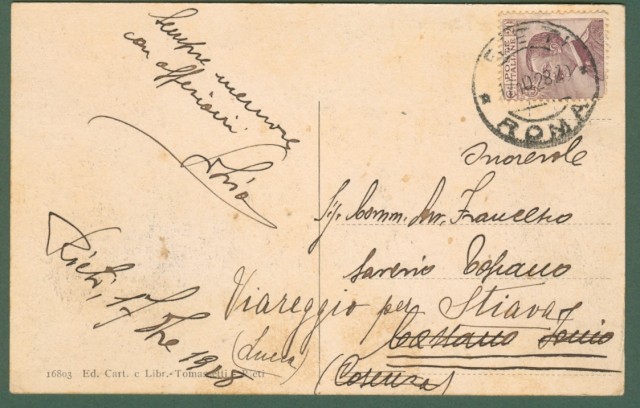 Sempre memore
con affezioni
Rieti, 17 7bre 1928
16803 Ed. Cart. e Libr. Tomassetti - Rieti
POSTE
ITALIANE
28
ROMA
Onorevole
Sig. Comm. Avv. Francesco
Saverio
Viareggio per Stiava
(Lucca)
Ionio
(Cosenza)